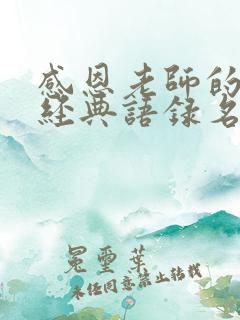 感恩老師的
經典語錄名
冕靈葉
未任同意禁止轉載